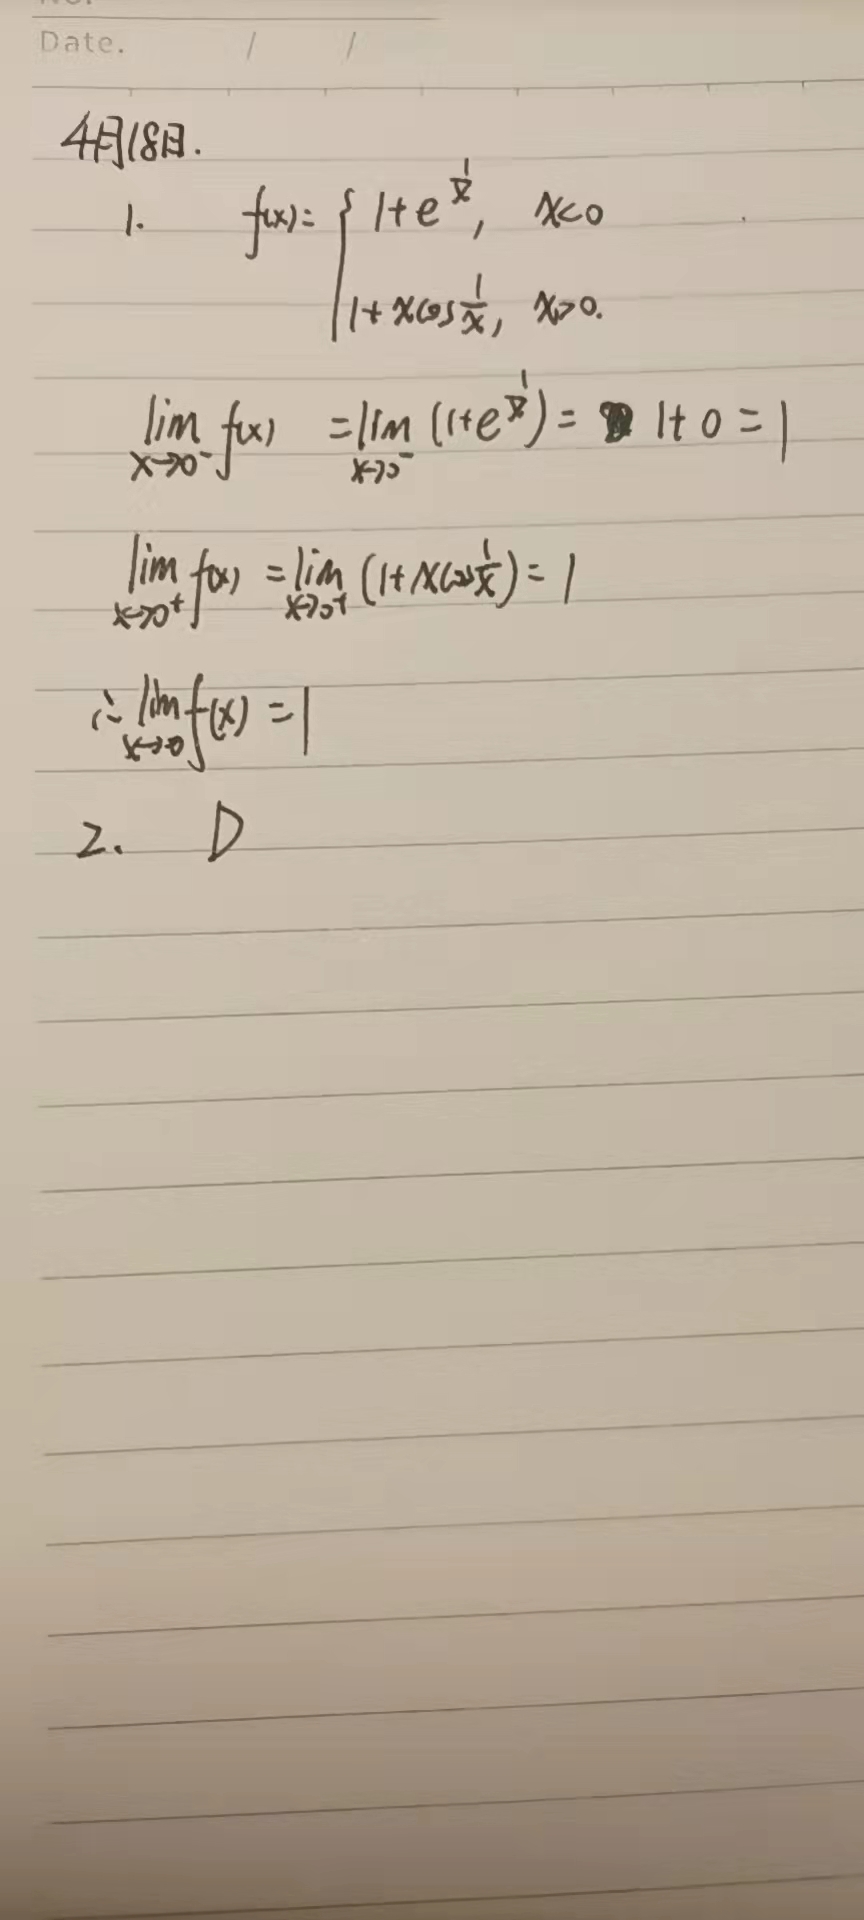 No.
Date. / /
4月18日.
1. f(x)= { 1+e^{1/x}, x<0
1+xcos 1/x, x>0.
lim x→0⁻ f(x) = lim x→0⁻ (1+e^{1/x}) = 1+0=1
lim x→0⁺ f(x) = lim x→0⁺ (1+xcos 1/x) = 1
∴ lim x→0 f(x) = 1
2. D